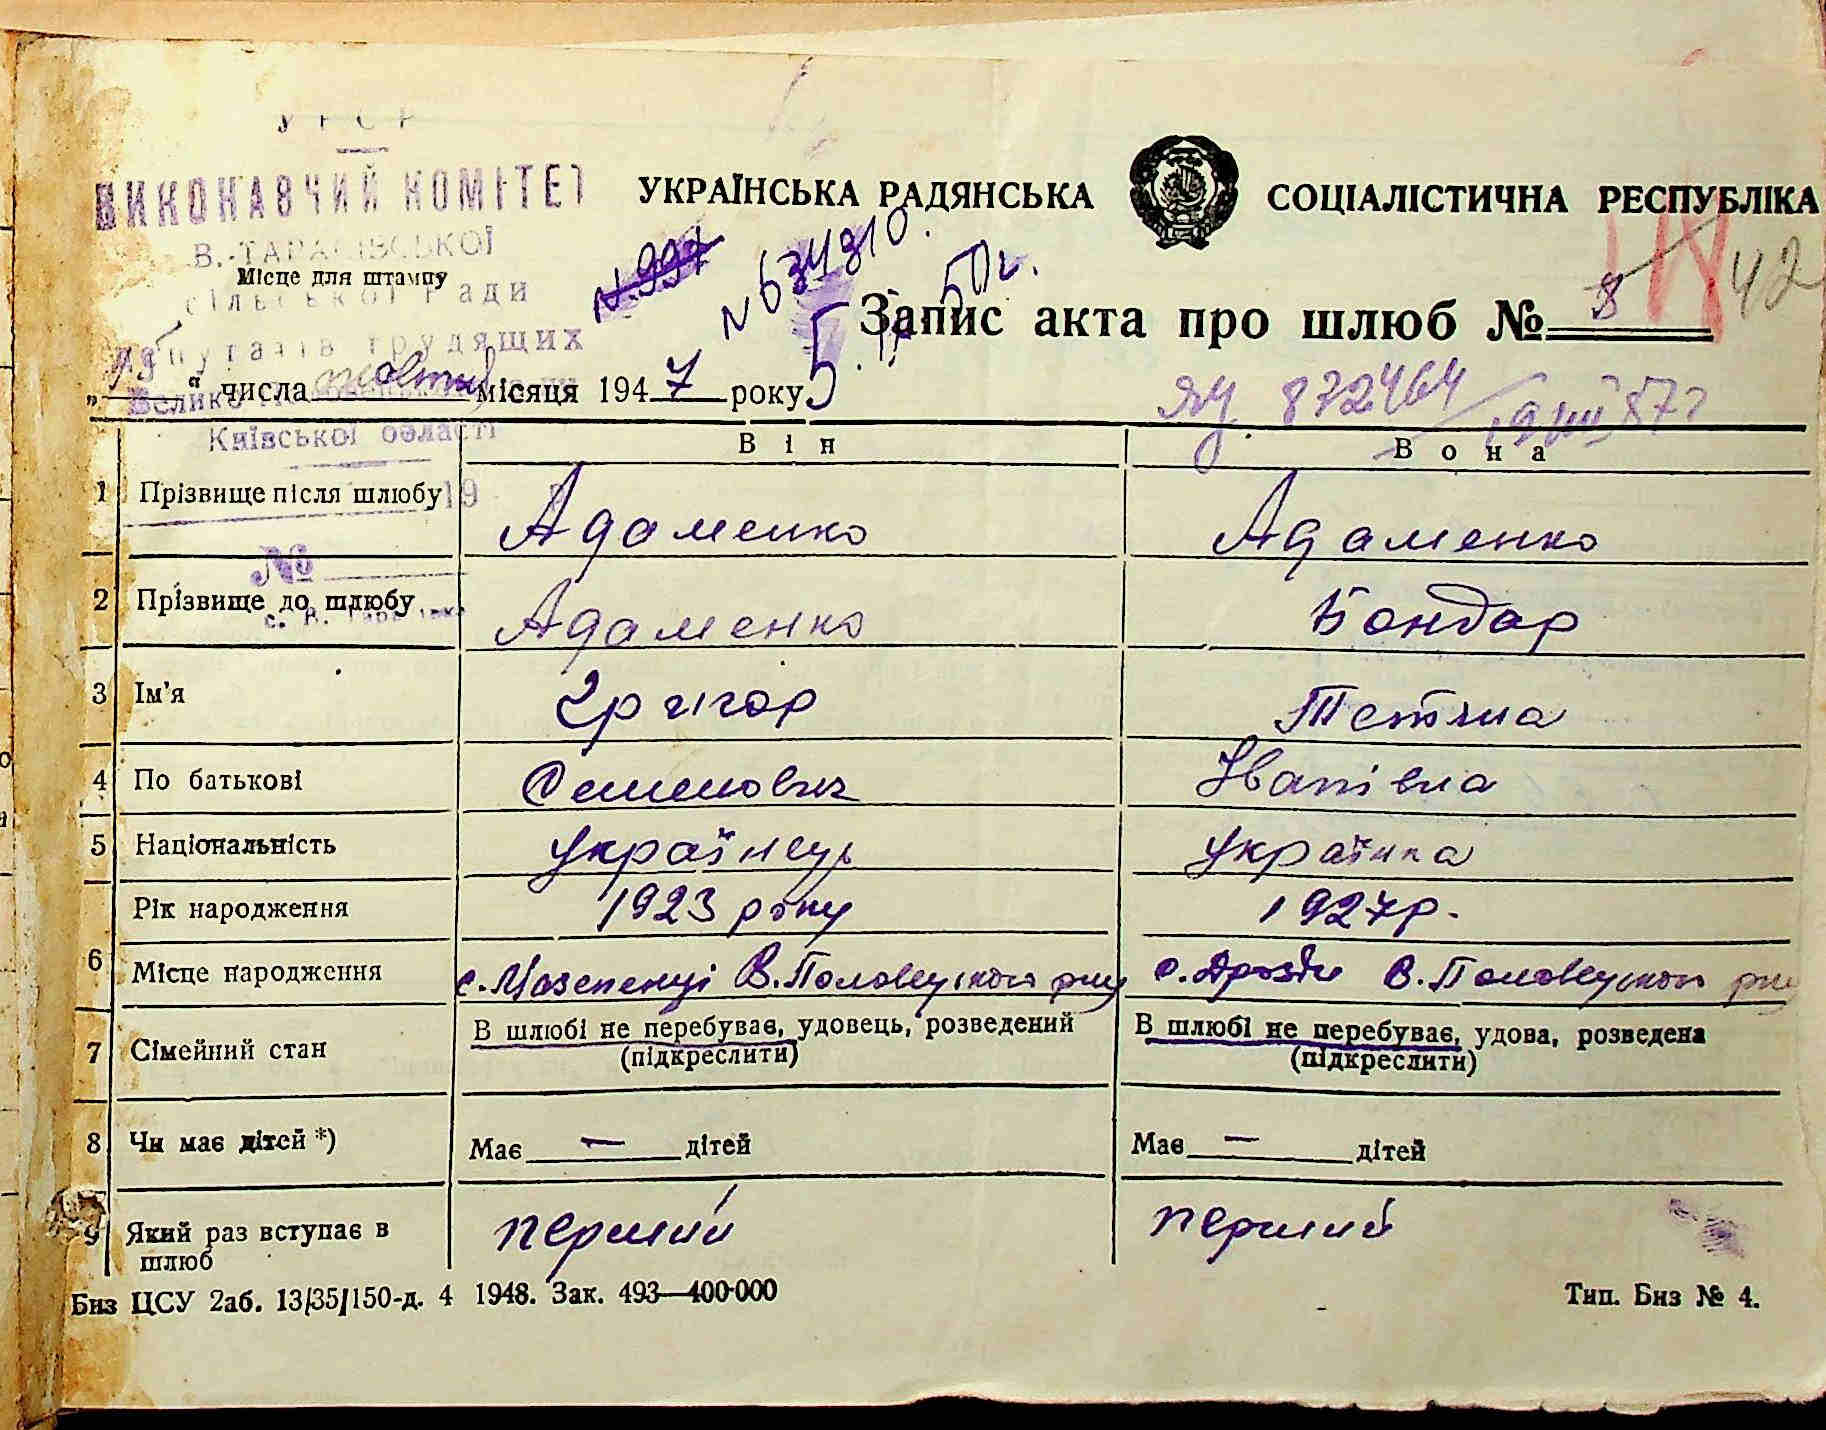 УРСР
ВИКОНАВЧИЙ КОМІТЕТ
УКРАЇНСЬКА РАДЯНСЬКА СОЦІАЛІСТИЧНА РЕСПУБЛІКА
В.-ТАРАСІВСЬКОЇ
Місце для штампу
сільської Ради
N 997
N 634310
50 р.
42
Запис акта про шлюб № 8
депутатів трудящих
„19“ числа жовтня місяця 1947 року
872464
Київської області
Він Вона
1 Прізвище після шлюбу Адаменко Адаменко
19
№
2 Прізвище до шлюбу Адаменко Бондар
3 Ім'я Григор Тетяна
4 По батькові Семенович Іванівна
5 Національність українець українка
Рік народження 1923 року 1927 р.
6 Місце народження с. Мазепенці В. Половецького р-ну с. Дрозди В. Половецького р-ну
7 Сімейний стан В шлюбі не перебуває, удовець, розведений В шлюбі не перебуває, удова, розведена
(підкреслити) (підкреслити)
8 Чи має дітей *) Має — дітей Має — дітей
9 Який раз вступає в шлюб перший перший
Бнз ЦСУ 2аб. 13/35/150-д. 4 1948. Зак. 493—400·000 Тип. Бнз № 4.